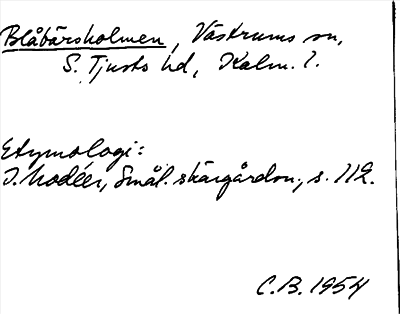 Blåbärsholmen, Västrums sn,
S. Tjusts hd, Kalm. l.
Etymologi:
I. Modéer, Smål. skärgårdsn., s. 112.
C.B. 1954